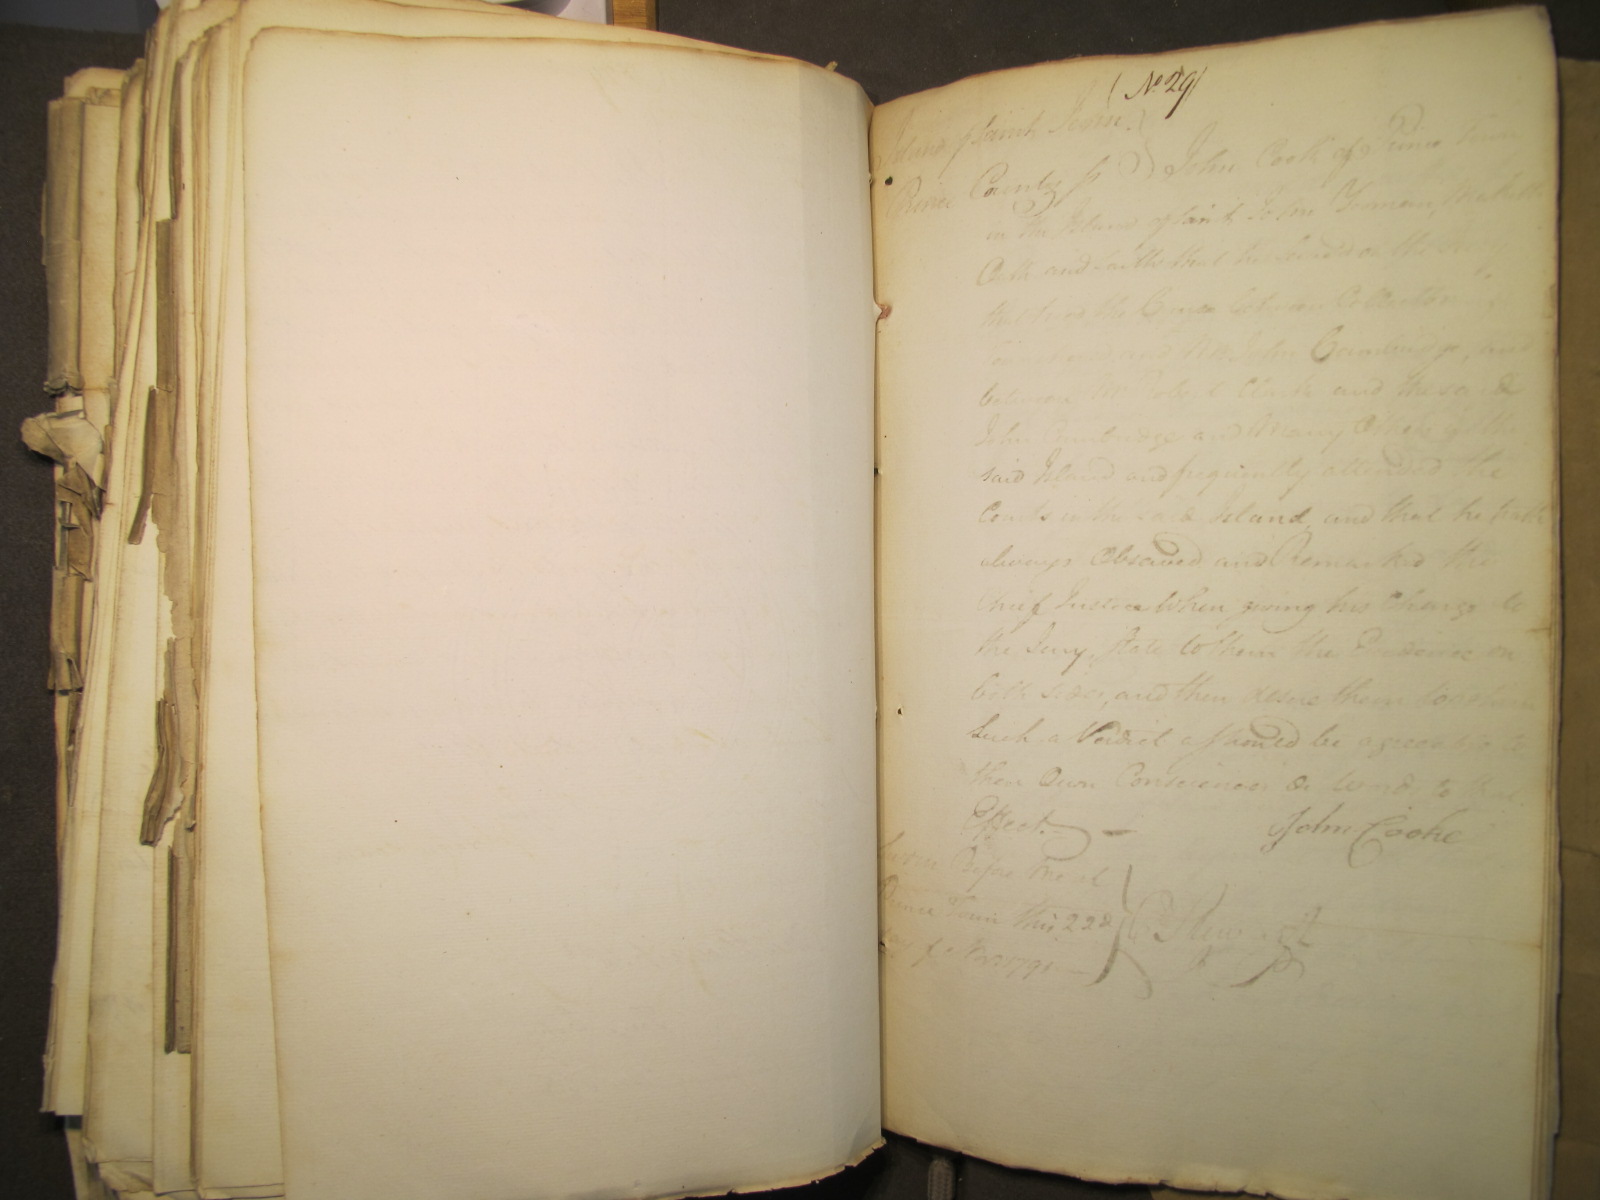 (No. 29)
Island of Saint John
Prince County ss John Cook of Prince Town
in the Island of Saint John Yeoman, Maketh
Oath and saith that he served on the
that tried the Cause between
and Mr. John Cambridge, and
between Mr. Robert Clark and the said
John Cambridge and Many Others in the
said Island and frequently attended the
Courts in the said Island, and that he hath
always Observed and Remarked the
Chief Justice When giving his Charge to
the Jury, State to them the Evidence on
both sides, and then desire them to
Such a Verdict as should be agreeable to
their Own Consciences or words to that
Effect. — John Cooke
Sworn Before me at
Prince Town this 22d
day of Novr. 1791 —